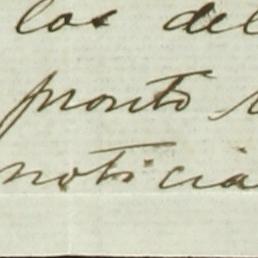 los del
pronto
noticia